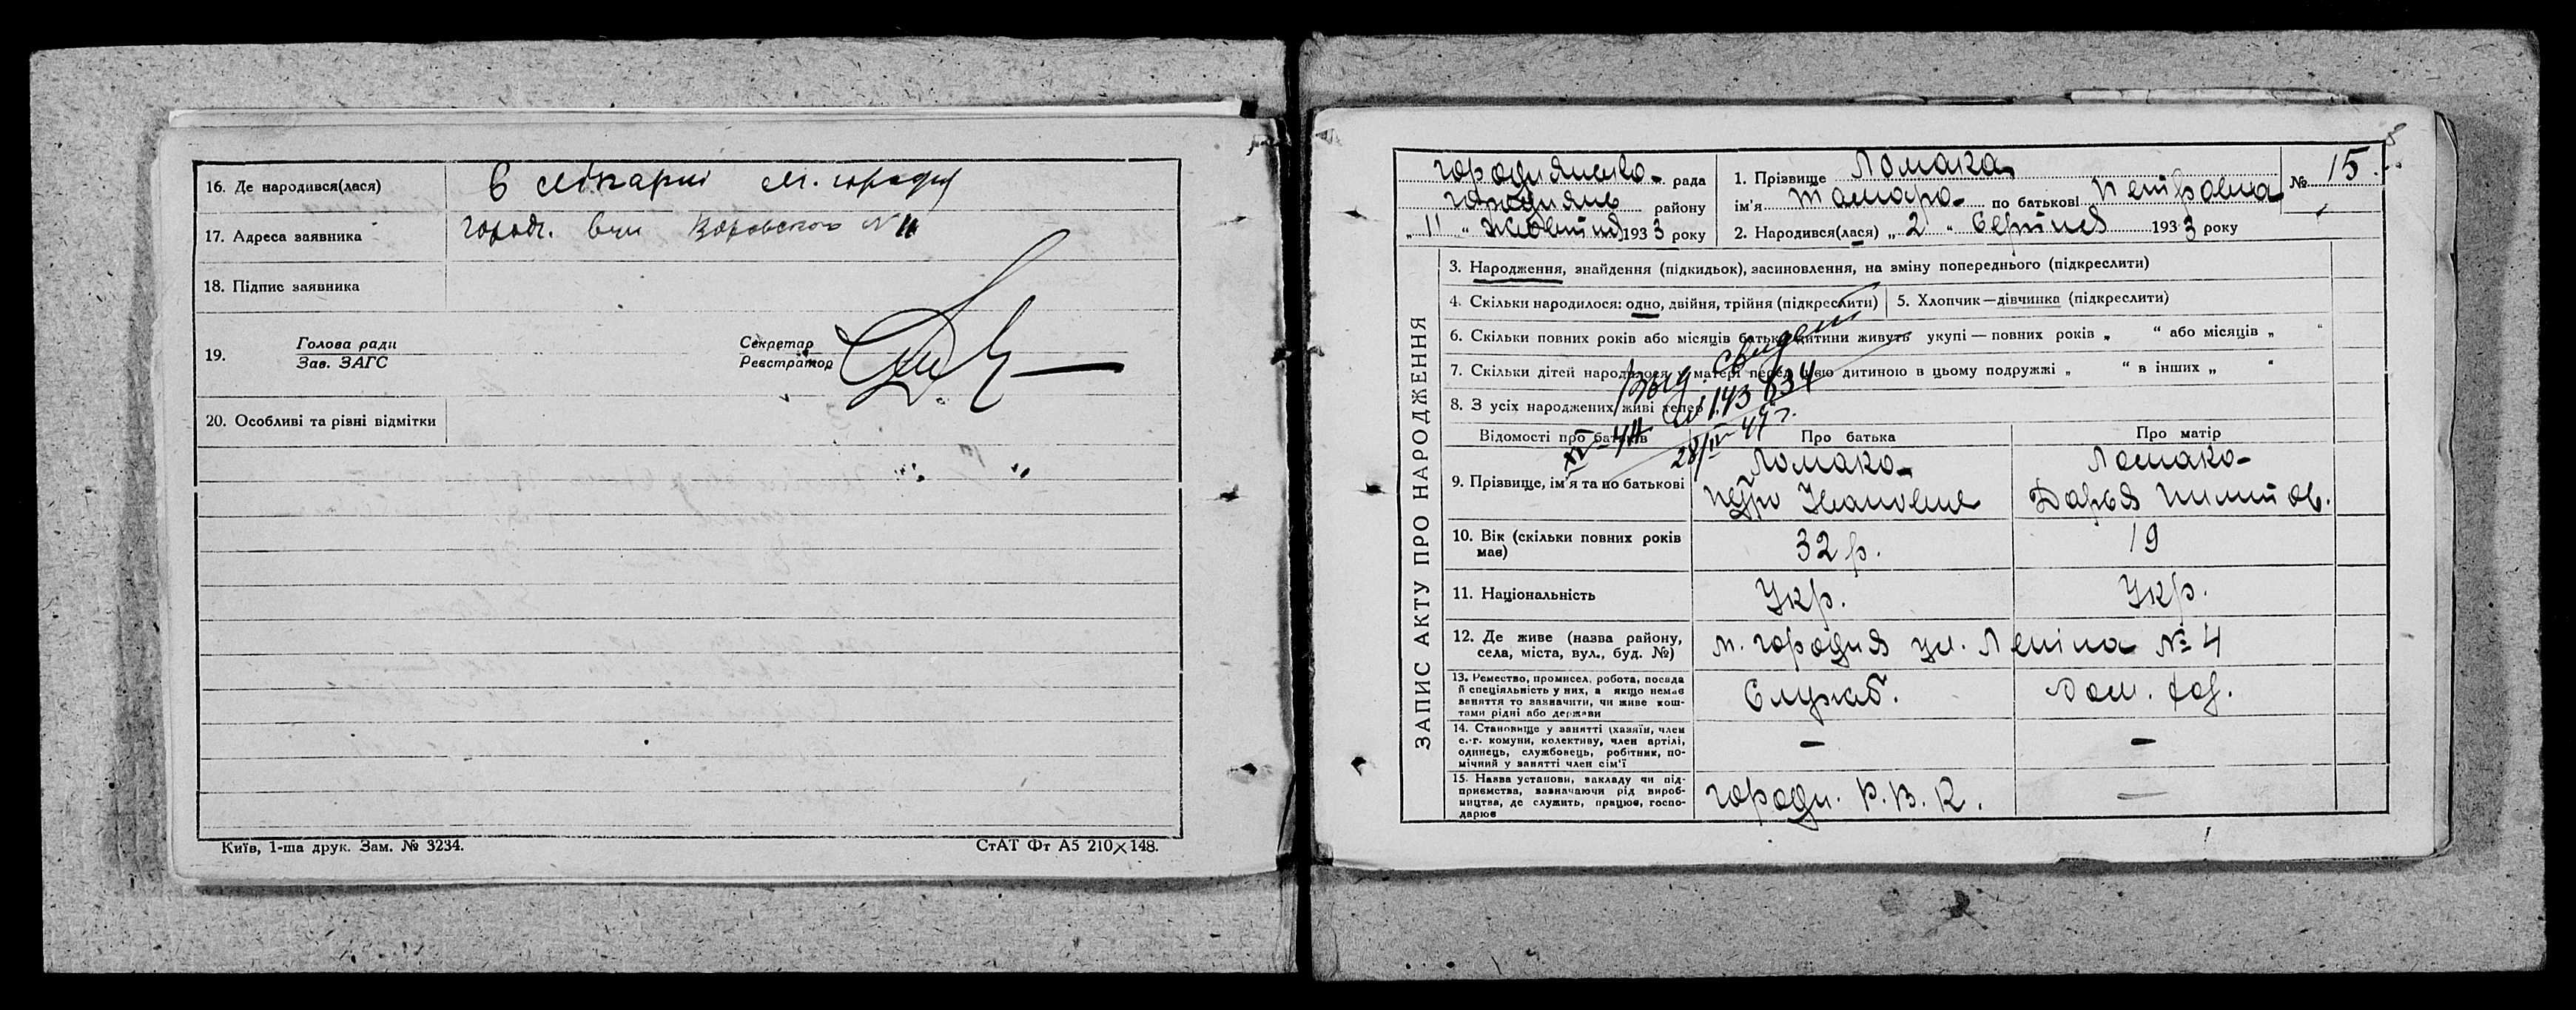 16. Де народився(лася) В лікарні м. Городня
17. Адреса заявника Городн. вул Воровського № 11
18. Підпис заявника
19. Голова ради
Зав. ЗАГС
Секретар
Реєстратор
20. Особливі та різні відмітки
Київ, 1-ша друк. Зам. № 3234.
СтАТ Фт А5 210×148.
Городнянська рада
Городнянь району
„ 11 “ Жовтня 1933 року
1. Прізвище Ломака
ім'я Тамара по батькові Петровна
2. Народився(лася) „ 2 “ Серпня 1933 року
№ 15
ЗАПИС АКТУ ПРО НАРОДЖЕННЯ
3. Народження, знайдення (підкидьок), засиновлення, на зміну попереднього (підкреслити)
4. Скільки народилося: одно, двійня, трійня (підкреслити)
5. Хлопчик—дівчинка (підкреслити)
6. Скільки повних років або місяців батьки дитини живуть укупі — повних років „ “ або місяців „ “
7. Скільки дітей народилося у матері перед цією дитиною в цьому подружжі „ “ в інших „ “
8. З усіх народжених живі тепер
Выд. свидет
№ 143834
28/IV-47г.
Відомості про батьків
Про батька
Про матір
9. Прізвище, ім'я та по батькові
Ломака
Петро Іванович
Ломака
Дарья
10. Вік (скільки повних років має)
32 р.
19
11. Національність
Укр.
Укр.
12. Де живе (назва району,
села, міста, вул., буд. №)
м. Городня ул. Леніна № 4
13. Ремество, промисел, робота, посада
й спеціяльність у них, а якщо немає
заняття то зазначити, чи живе кош-
тами рідні або держави
Служб.
Дом. хоз.
14. Становище у занятті (хазяїн, член
с.-г. комуни, колективу, член артілі,
одинець, службовець, робітник, по-
мічний у занятті член сім'ї
—
—
15. Назва установи, закладу чи під-
приємства, зазначаючи рід вироб-
ництва, де служить, працює, госпо-
дарює
Городн. Р.В.К.
—